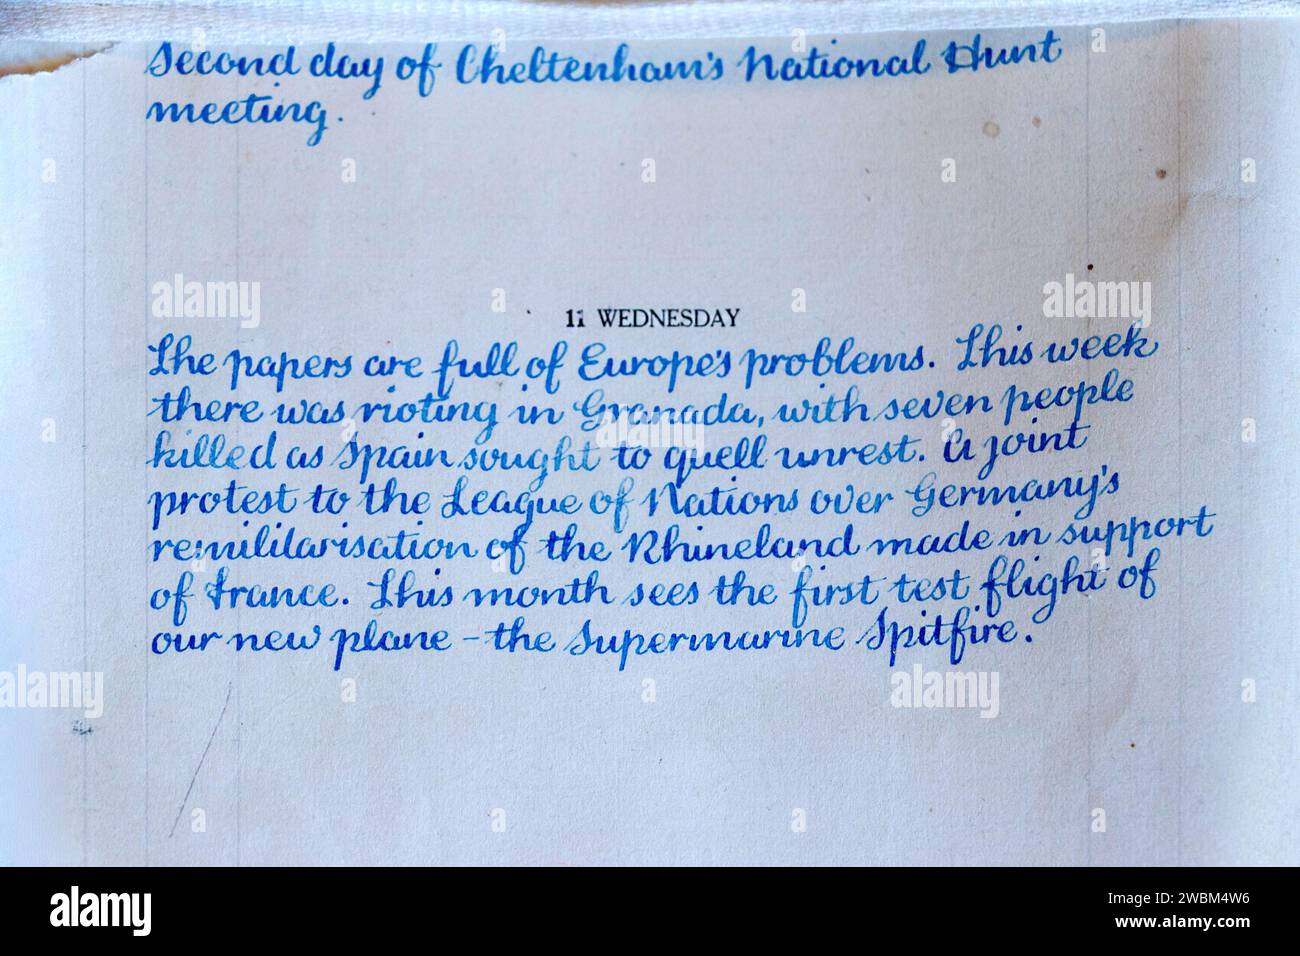 Second day of Cheltenham's National Hunt
meeting.
11 WEDNESDAY
The papers are full of Europe's problems. This week
there was rioting in Granada, with seven people
killed as Spain sought to quell unrest. A joint
protest to the League of Nations over Germany's
remilitarisation of the Rhineland made in support
of France. This month sees the first test flight of
our new plane - the Supermarine Spitfire.
alamy
Image ID: 2WBM4W6
www.alamy.com